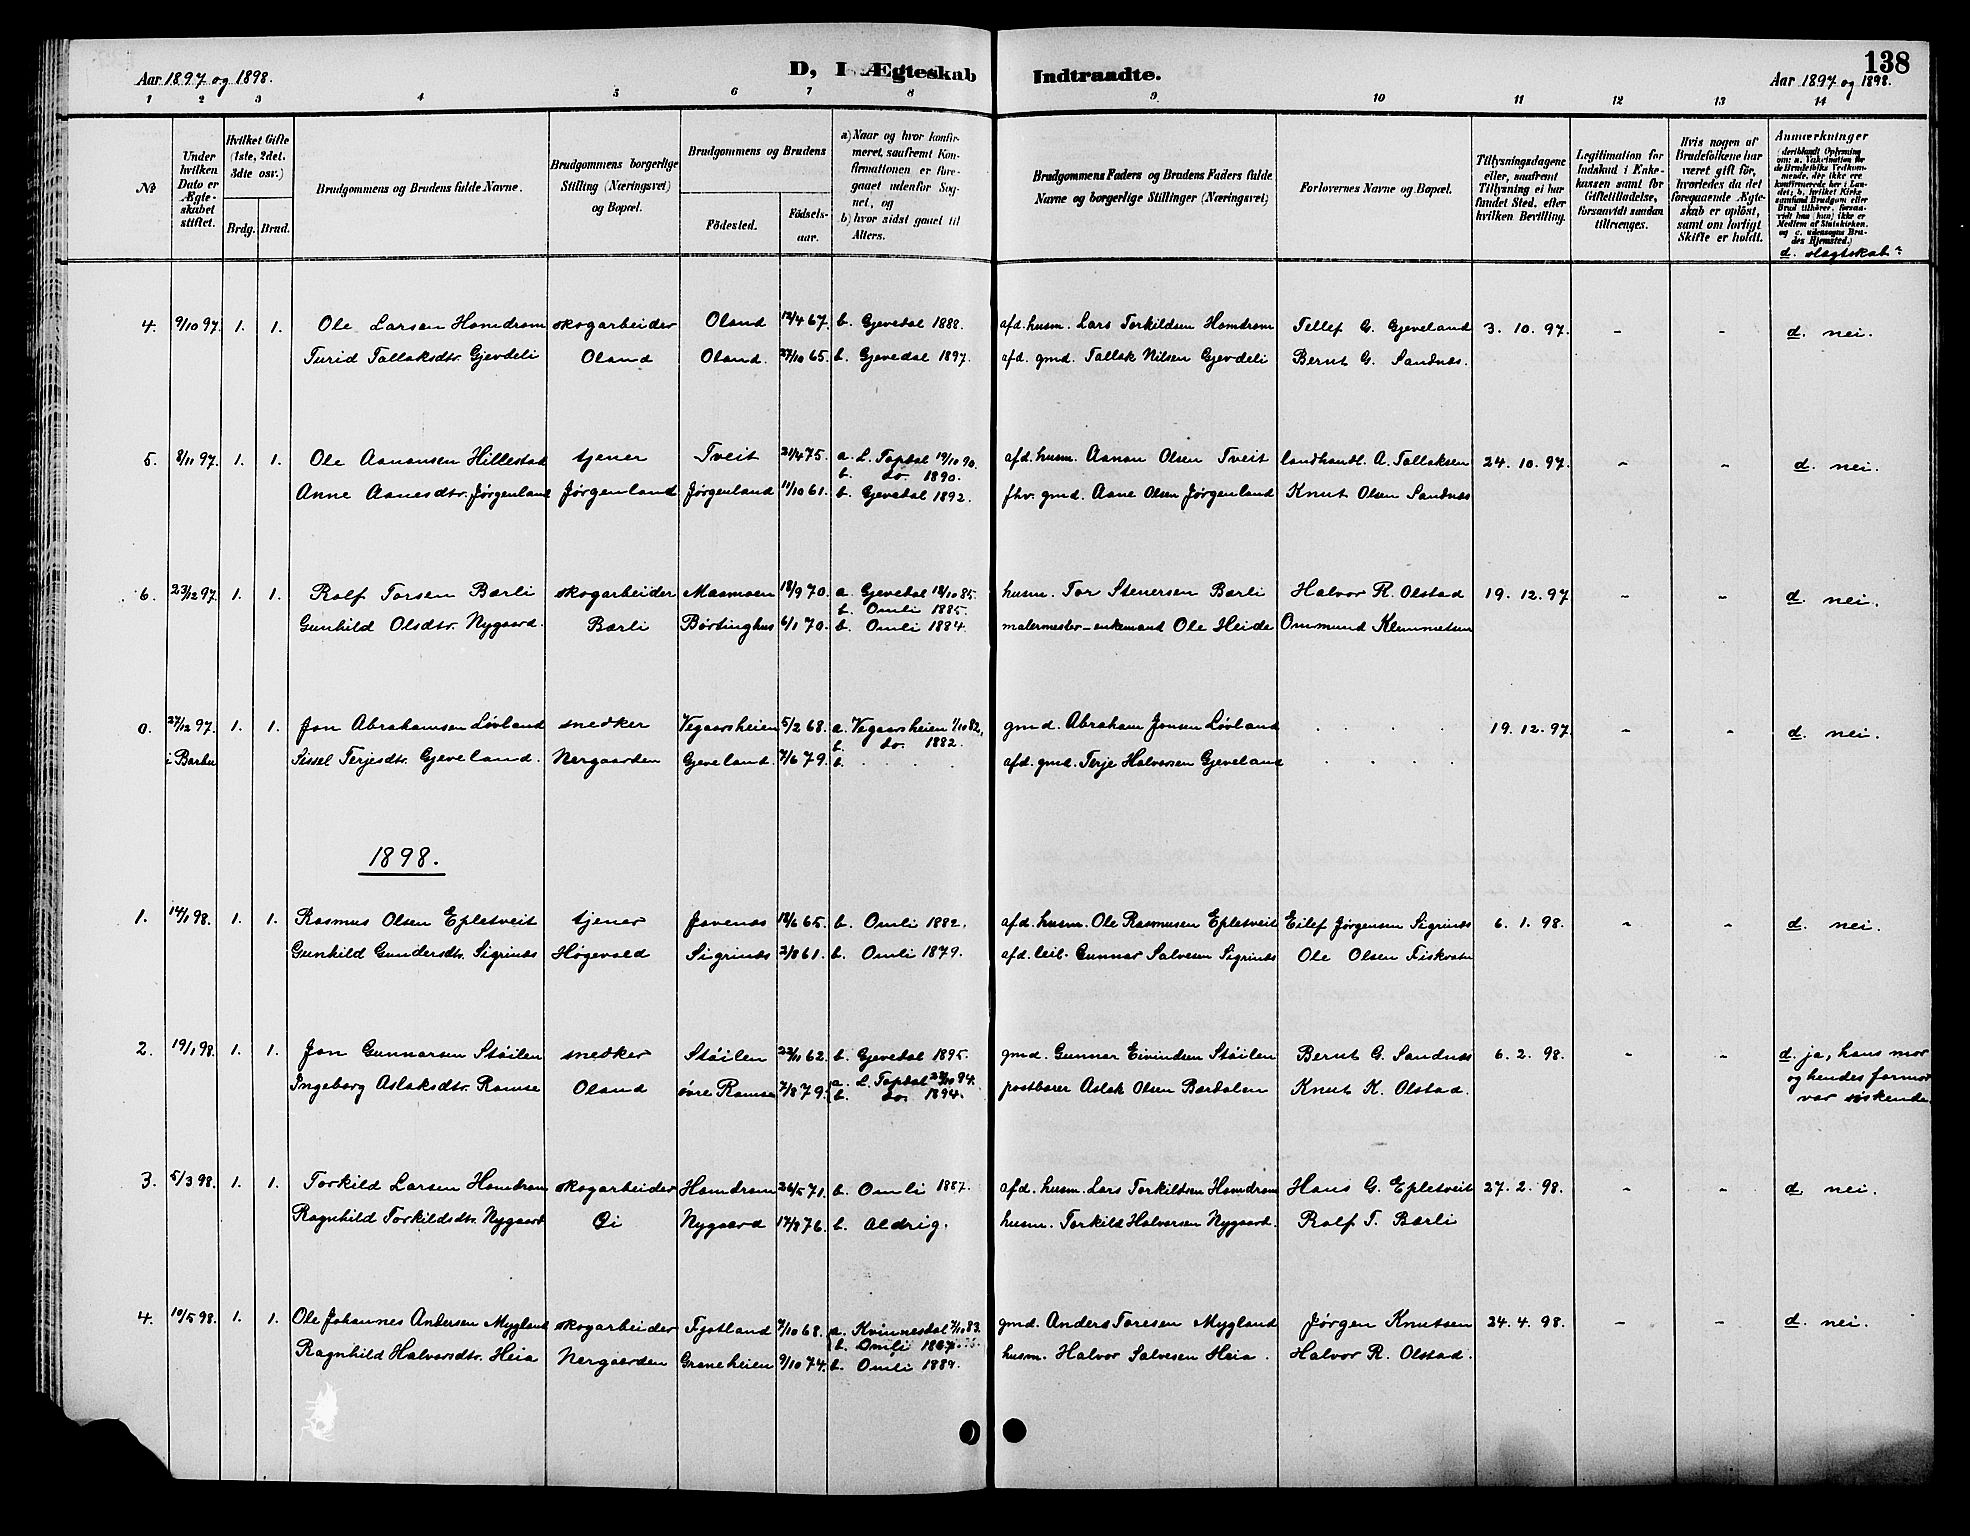 138
Aar 1897 og 1898.
D, I Ægteskab
Indtraadte.
Aar 1897 og 1898.
1 2 3 4 5 6 7 8 9 10 11 12 13 14
No
Under hvilken Dato er Ægteskabet stiftet.
Hvilket Gifte (1ste, 2det, 3dte osv.)
Brdg. Brud.
Brudgommens og Brudens fulde Navne.
Brudgommens borgerlige Stilling (Næringsvei) og Bopæl.
Brudgommens og Brudens
Födested.
Födselsaar.
a) Naar og hvor konfirmeret, saafremt Konfirmationen er foregaaet udenfor Sognet, og
b) hvor sidst gaaet til Alters.
Brudgommens Faders og Brudens Faders fulde Navne og borgerlige Stillinger (Næringsvei)
Forlovernes Navne og Bopæl.
Tillysningsdagene eller, saafremt Tillysning ei har fundet Sted, efter hvilken Bevilling.
Legitimation for Indskud i Enkekassen samt for Giftetilladelse, forsaavidt saadan tiltrænges.
Hvis nogen af Brudefolkene har været gift för, hvorledes da det foregaaende Ægteskab er oplöst, samt om lovligt Skifte er holdt.
Anmærkninger (deriblandt Oplysning om: a. Vakcination for de Brudefolks Vedkommende, der ikke ere konfirmerede her i Landet; b. hvilket Kirkesamfund Brudgom eller Brud tilhörer, forsaavidt han (hun) ikke er Medlem af Statskirken, og c. udensogns Brudes Hjemsted.)
d. slægtskab?
4. 9/10 97. 1. 1. Ole Larsen Homdrom skogarbeider Oland 12/4 67. b. Gjevedal 1888. afd. husm. Lars Torkildsen Homdrom Tellef G. Gjeveland 3. 10. 97. - - d. nei.
Turid Tallaksdtr. Gjevdeli Oland Oland. 27/10 65. b. Gjevedal 1897. afd. gmd. Tallak Nilsen Gjevdeli Bernt G. Sandnæs.
5. 8/11 97. 1. 1. Ole Aanonsen Hillestad tjener Tveit 21/4 75. a. L. Topdal 19/10 90. afd. husm. Aanon Olsen Tveit landhandl. A. Tallaksen 24. 10. 97. - - d. nei.
b. do. 1890.
Anne Aanesdtr. Jørgenland Jørgenland Jørgenland 11/10 61. b. Gjevedal 1892. fhv. gmd. Aane Olsen Jørgenland Knut Olsen Sandnæs
6. 23/12 97. 1. 1. Rolf Torsen Bærli skogarbeider Masmoen 18/9 70. a. Gjevedal 18/10 85. husm. Tor Stenersen Bærli Halvor R. Olstad 19. 12. 97. - - d. nei.
b. Omli 1885.
Gunhild Olsdtr. Nygaard. Bærli Børtinghus 6/1 70. b. Omli 1884. malermester-enkemand Ole Heide Ommund Klemmetsen
0. 27/12 97. 1. 1. Jon Abrahamsen Løvland snedker Vegaarsheien 5/2 68. a. Vegaarsheien 1/10 82. gmd. Abraham Jonsen Løvland . . . . 19. 12. 97. - - d. nei.
b. do. 1882.
i Barbu Sissel Terjesdtr. Gjeveland. Nergaarden Gjeveland. 7/6 79. b. . . . . afd. gmd. Terje Halvorsen Gjeveland . . . .
1898.
1. 14/1 98. 1. 1. Rasmus Olsen Epletveit tjener Jovenæs 18/6 65. b. Omli 1882. afd. husm. Ole Rasmusen Epletveit Eilef Jørgensen Sigrinæs 6. 1. 98. - - d. nei.
Gunhild Gundersdtr. Sigrinæs Høgevold Sigrinæs 2/8 61. b. Omli 1879. afd. leil. Gunnar Salvesen Sigrinæs Ole Olsen Fiskvatn
2. 19/1 98. 1. 1. Jon Gunnarsen Støilen snedker Støilen 22/11 62. b. Gjevedal 1895. gmd. Gunnar Eivindsen Støilen Bernt G. Sandnæs 6. 2. 98. - - d. ja, hans mor
og hendes farmor
Ingeborg Aslaksdtr. Ramse Oland øvre Ramse 7/8 79. a. L. Topdal 28/10 94. postbærer Aslak Olsen Bærdalen Knut K. Olstad.
b. do. 1894. var søskende.
3. 5/3 98. 1. 1. Torkild Larsen Homdrom skogarbeider Homdrom 26/5 71. b. Omli 1887. afd. husm. Lars Torkildsen Homdrom Hans G. Epletveit 27. 2. 98. - - d. nei.
Ragnhild Torkildsdtr. Nygaard Øi Nygaard 14/8 76. b. Aldrig. husm. Torkild Halvorsen Nygaard. Rolf T. Bærli
4. 10/5 98. 1. 1. Ole Johannes Andersen Mygland skogarbeider Fjotland 7/10 68. a. Kvinnesdal 7/10 83. gmd. Anders Toresen Mygland Jørgen Knutsen 24. 4. 98. - - d. nei.
b. Omli 1887.
Ragnhild Halvorsdtr. Heia Nergaarden Graneheien 9/10 74. b. Omli 1889. husm. Halvor Salvesen Heia. Halvor R. Olstad.